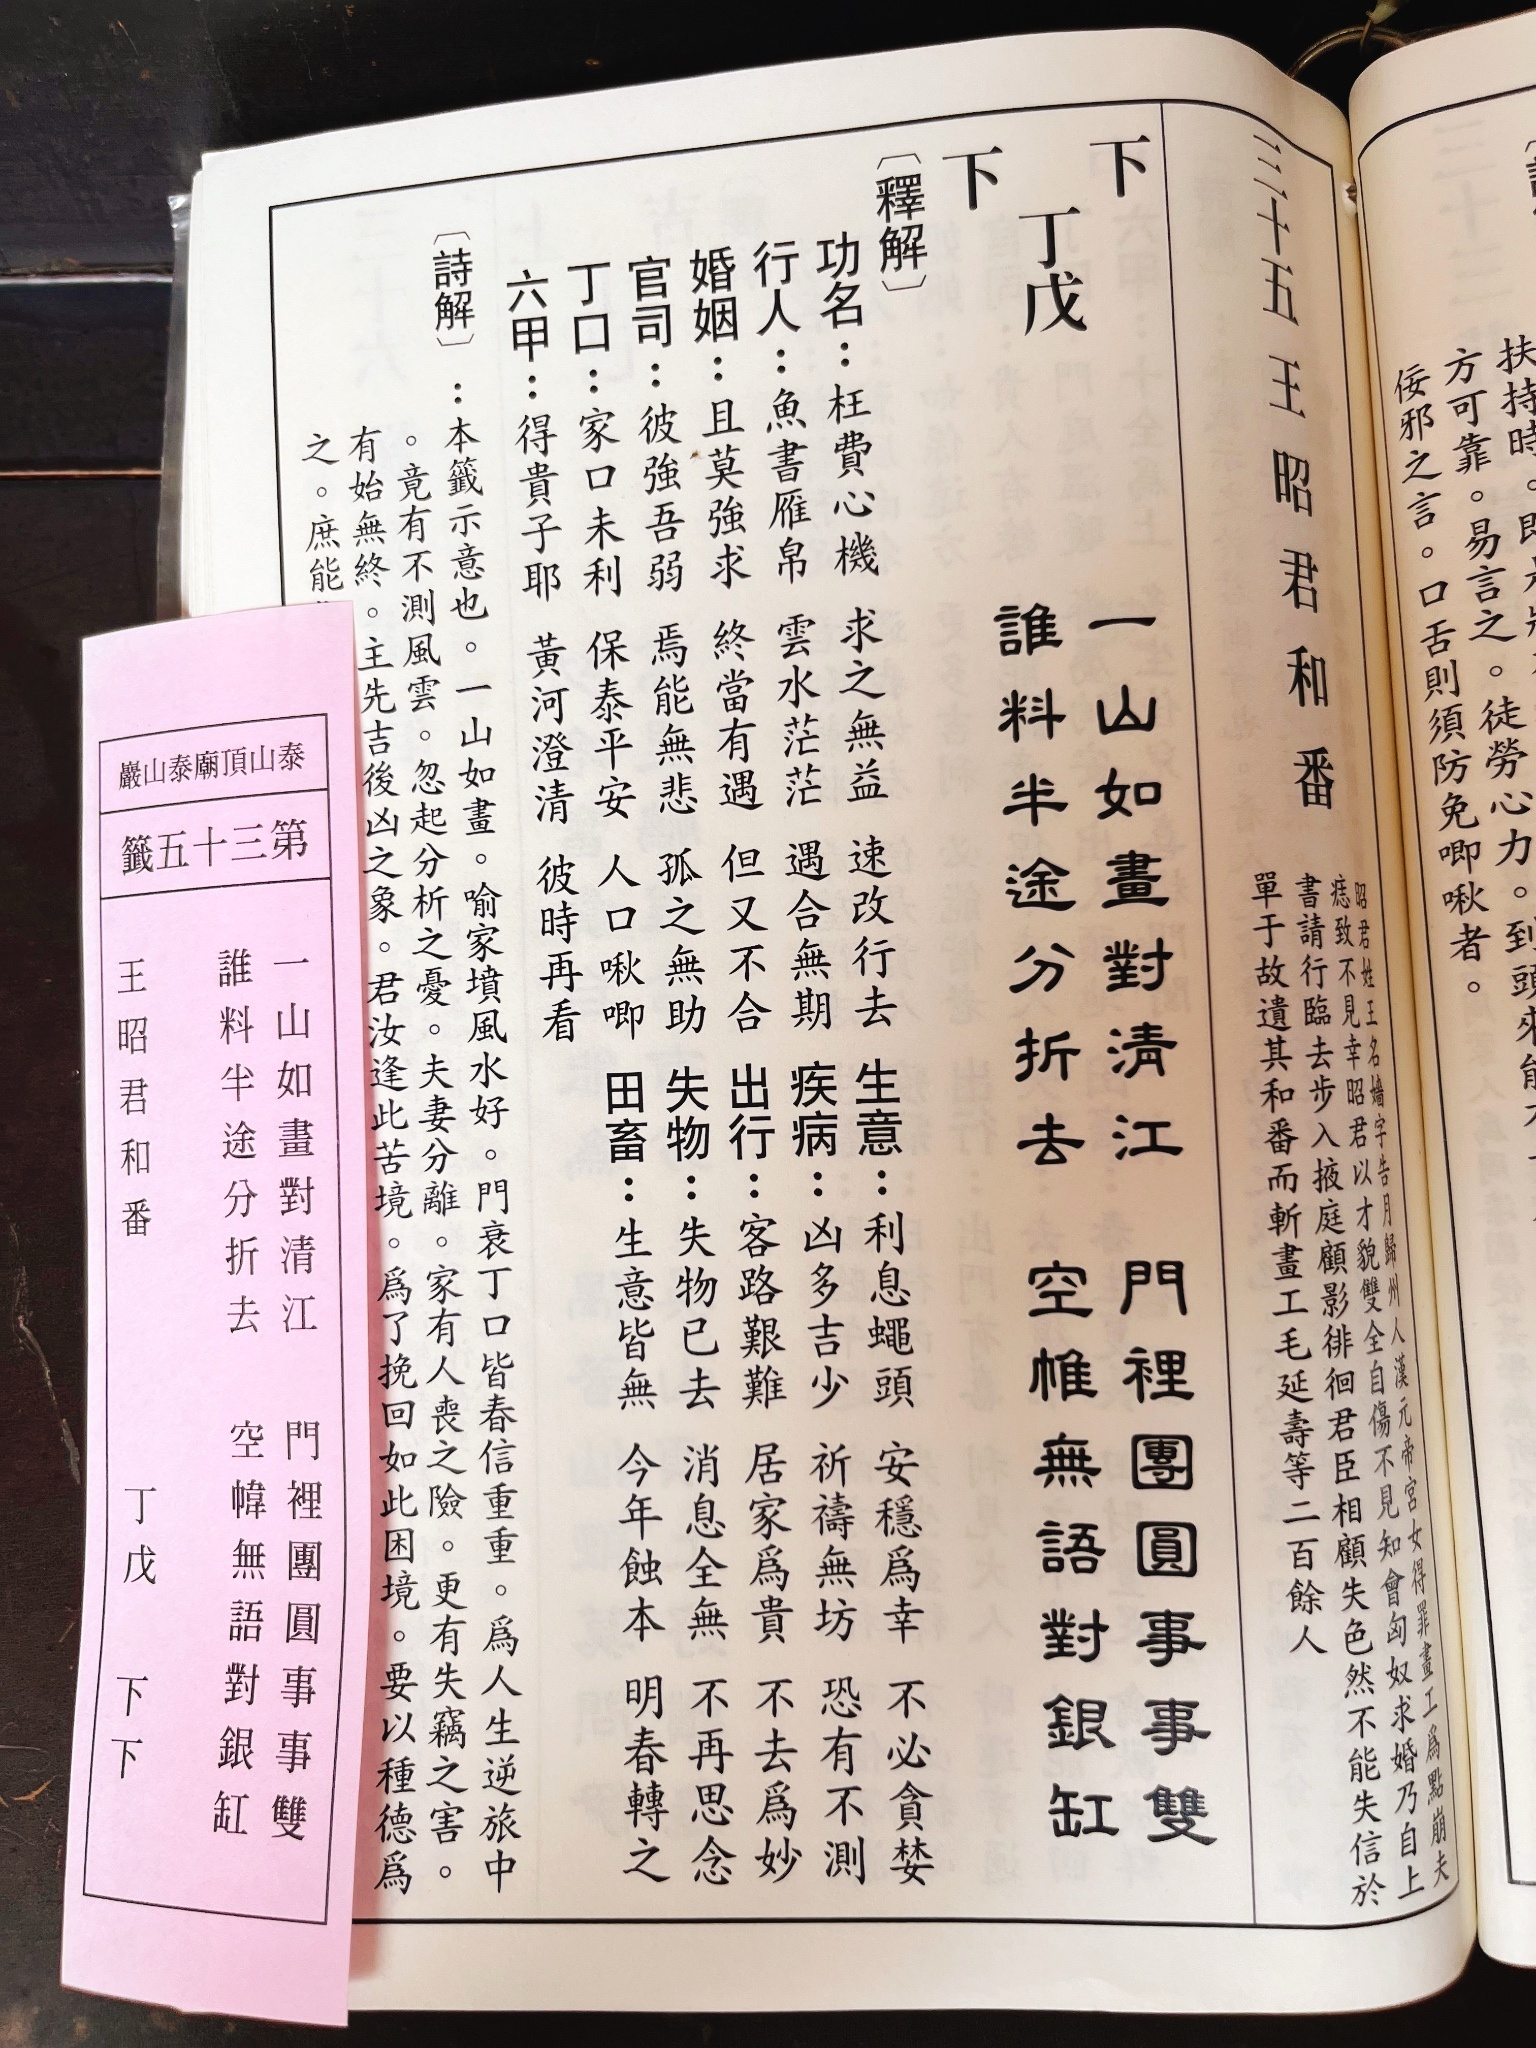 扶持時。
方可靠。易言之。徒勞心力。到頭來能
佞邪之言。口舌則須防免唧啾者。
三十五 王昭君和番
昭君姓王名嬙字告月歸州人漢元帝宮女得罪畫工爲點崩夫
痣致不見幸昭君以才貌雙全自傷不見知會匈奴求婚乃自上
書請行臨去步入掖庭顧影徘徊君臣相顧失色然不能失信於
單于故遺其和番而斬畫工毛延壽等二百餘人
下
丁戊
下
一山如畫對清江 門裡團圓事事雙
誰料半途分折去 空帷無語對銀缸
〔釋解〕
功名：枉費心機 求之無益 速改行去 生意：利息蠅頭 安穩爲幸 不必貪婪
行人：魚書雁帛 雲水茫茫 遇合無期 疾病：凶多吉少 祈禱無坊 恐有不測
婚姻：且莫強求 終當有遇 但又不合 出行：客路艱難 居家爲貴 不去爲妙
官司：彼強吾弱 焉能無悲 孤之無助 失物：失物已去 消息全無 不再思念
丁口：家口未利 保泰平安 人口啾唧 田畜：生意皆無 今年蝕本 明春轉之
六甲：得貴子耶 黃河澄清 彼時再看
〔詩解〕：本籤示意也。一山如畫。喻家墳風水好。門衰丁口皆春信重重。爲人生逆旅中
。竟有不測風雲。忽起分析之憂。夫妻分離。家有人喪之險。更有失竊之害。
有始無終。主先吉後凶之象。君汝逢此苦境。爲了挽回如此困境。要以種德爲
之。庶能
巖山泰廟頂山泰
籤五十三第
一山如畫對清江 門裡團圓事事雙
誰料半途分折去 空幃無語對銀缸
王昭君和番 丁戊 下下